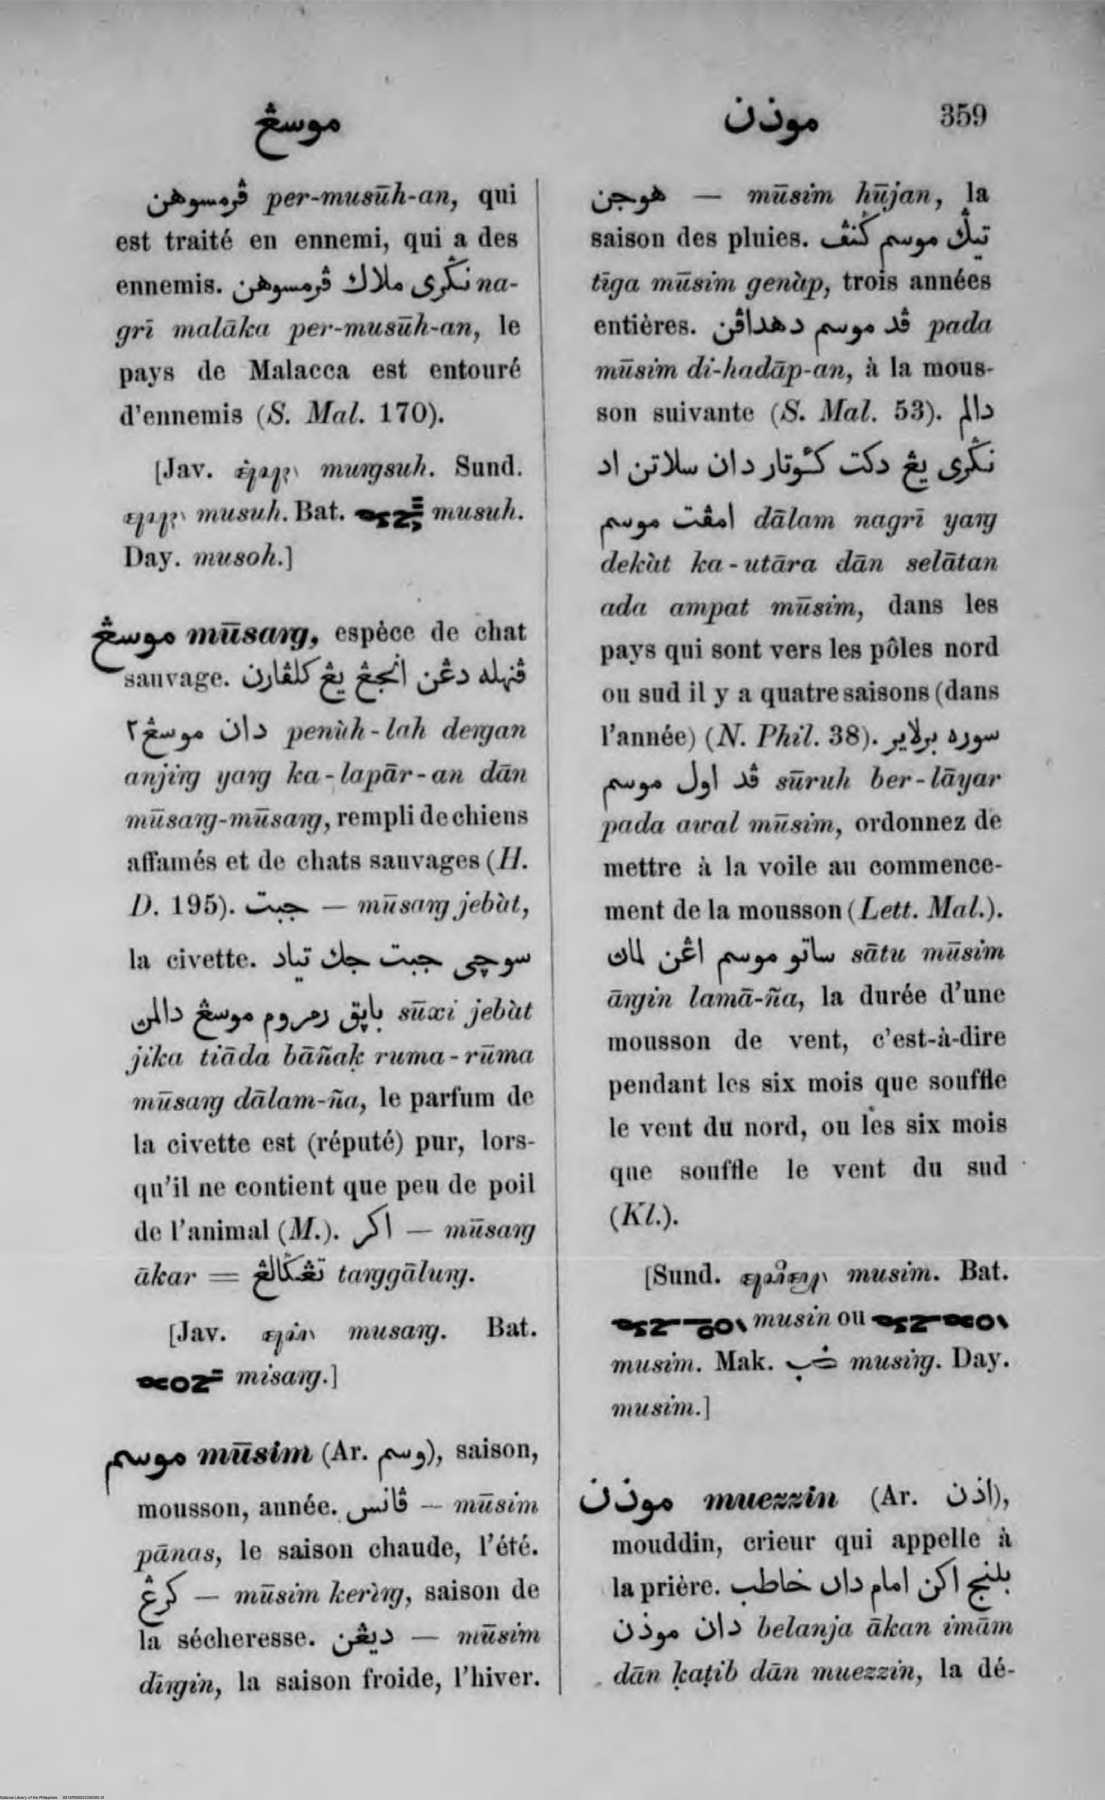 موسڠ
موذن 359
ڤرمسوهن per-musūh-an, qui
est traité en ennemi, qui a des
ennemis. نڬري ملاك ڤرمسوهن na-
grī malāka per-musūh-an, le
pays de Malacca est entouré
d'ennemis (S. Mal. 170).
[Jav. muŋsuh. Sund.
musuh. Bat. musuh.
Day. musoh.]
موسڠ mūsaŋ, espèce de chat
sauvage. ڤنهله دڠن انجڠ يڠ كلڤارن
دان موسڠ٢ penùh-lah deŋan
anjiŋ yaŋ ka-lapār-an dān
mūsaŋ-mūsaŋ, rempli de chiens
affamés et de chats sauvages (H.
D. 195). جبت — mūsaŋ jebàt,
la civette. سوچي جبت جك تياد
باپق رمروم موسڠ دالمن sūxi jebàt
jika tiāda bāñaḳ ruma-rūma
mūsaŋ dālam-ña, le parfum de
la civette est (réputé) pur, lors-
qu'il ne contient que peu de poil
de l'animal (M.). اكر — mūsaŋ
ākar = تڠڬالڠ taŋgāluŋ.
[Jav. musaŋ. Bat.
misaŋ.]
موسم mūsim (Ar. وسم), saison,
mousson, année. ڤانس — mūsim
pānas, le saison chaude, l'été.
كرڠ — mūsim kerìŋ, saison de
la sécheresse. ديڠن — mūsim
dīŋin, la saison froide, l'hiver.
هوجن — mūsim hūjan, la
saison des pluies. تيڬ موسم ڬنڤ
tīga mūsim genàp, trois années
entières. ڤد موسم دهداڤن pada
mūsim di-hadāp-an, à la mous-
son suivante (S. Mal. 53). دالم
نڬري يڠ دكت كئوتار دان سلاتن اد
امڤت موسم dālam nagrī yaŋ
dekàt ka-utāra dān selātan
ada ampat mūsim, dans les
pays qui sont vers les pôles nord
ou sud il y a quatre saisons (dans
l'année) (N. Phil. 38). سوره برلاير
ڤد اول موسم sūruh ber-lāyar
pada awal mūsim, ordonnez de
mettre à la voile au commence-
ment de la mousson (Lett. Mal.).
ساتو موسم اڠن لمان sātu mūsim
āŋin lamā-ña, la durée d'une
mousson de vent, c'est-à-dire
pendant les six mois que souffle
le vent du nord, ou les six mois
que souffle le vent du sud
(Kl.).
[Sund. musim. Bat.
musin ou
musim. Mak. musiŋ. Day.
musim.]
موذن muezzin (Ar. اذن),
mouddin, crieur qui appelle à
la prière. بلنج اكن امام دان خاطب
دان موذن belanja ākan imām
dān ḳaṭib dān muezzin, la dé-